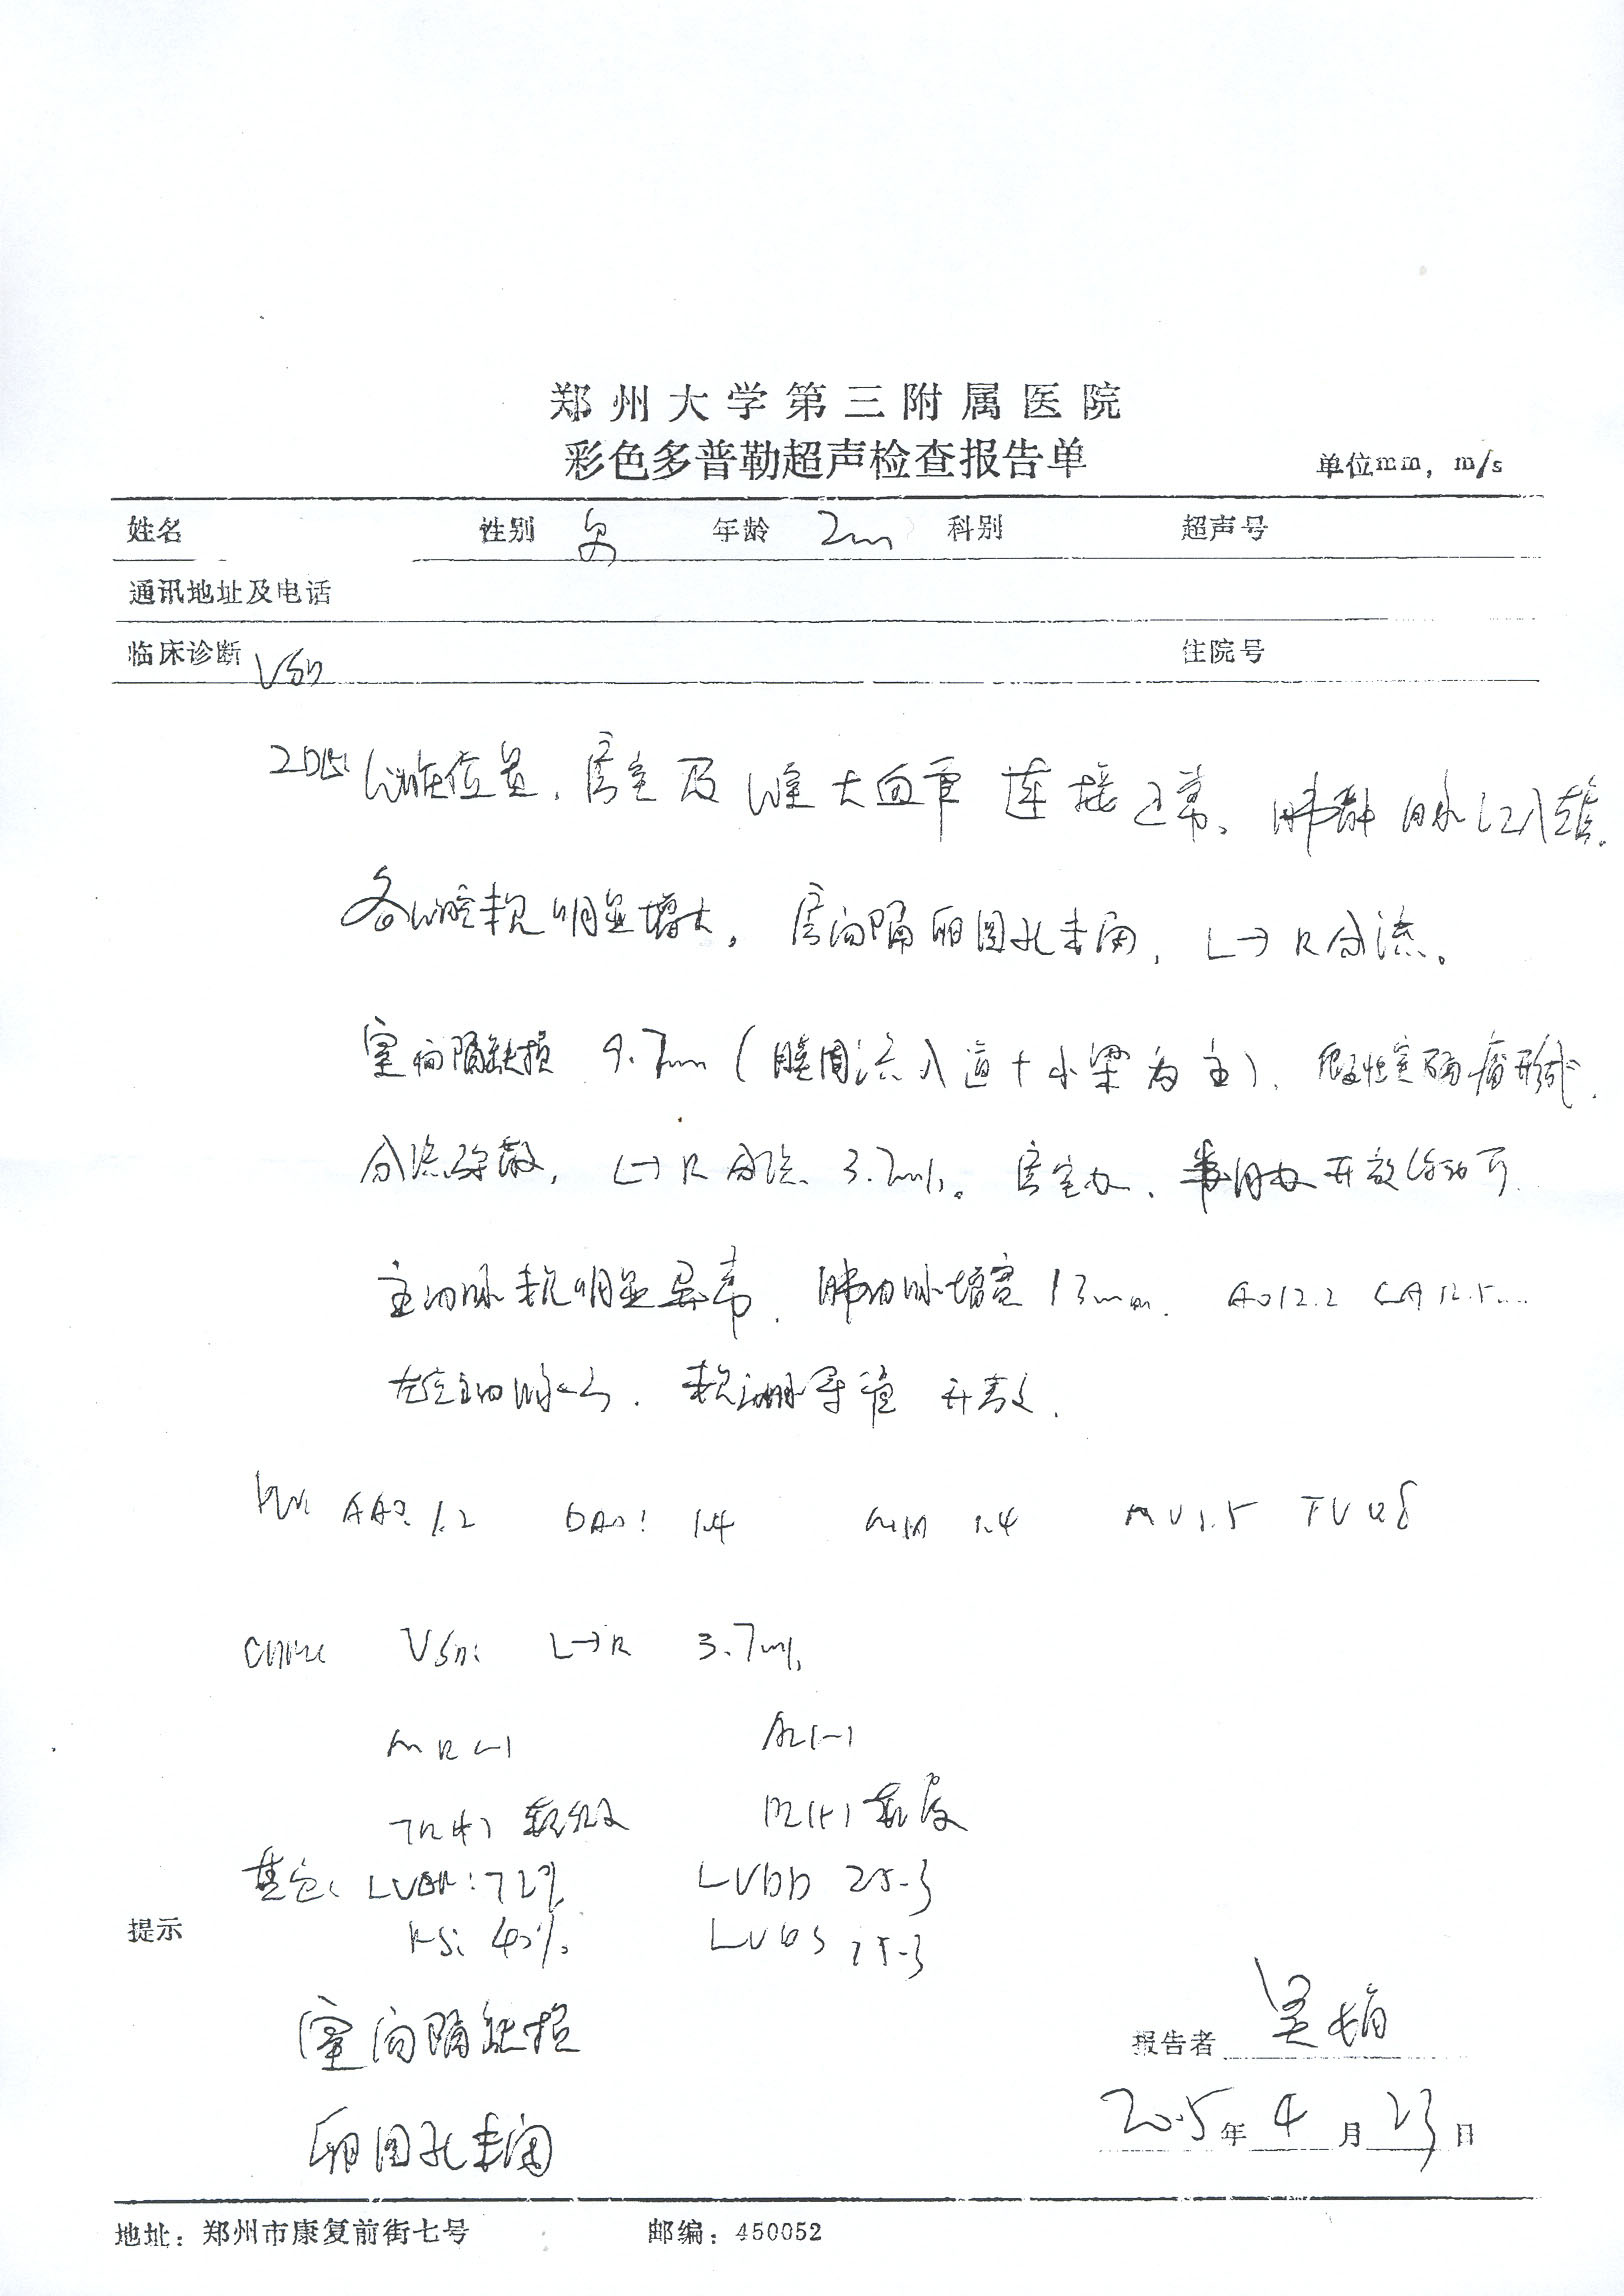 郑州大学第三附属医院
彩色多普勒超声检查报告单 单位mm, m/s
姓名 性别 年龄 2m 科别 超声号
通讯地址及电话
临床诊断 VSD 住院号
2DE: 心脏位置、房室及心室大血管连接正常。肺静脉汇入左房.
各心腔未见明显增大。房间隔卵圆孔未闭, L→R分流。
室间隔缺损 9.7mm (膜周流入道+小梁为主)、假性室隔瘤形成.
分流弥散, L→R分流 3.7m/s。房室瓣、半月瓣开放活动可.
主动脉未见明显异常. 肺动脉增宽 13mm. AO12.2 LA 12.5
左位主动脉弓. 未见动脉导管开放.
AAO: 1.2 DAO: 1.4 1.4 MV1.5 TV 0.8
VSD: L→R 3.7m/s
MR(-) AR(-)
TR(+) PR(+)
其它: 72% LVDD
提示 FS: 40%
室间隔缺损
报告者
卵圆孔未闭
2015年4月23日
地址: 郑州市康复前街七号 邮编: 450052